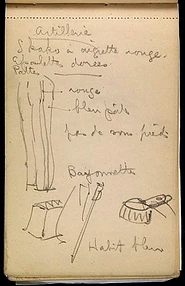 Artillerie
Shako à aigrette rouge.
Epaulettes dorées
Pattes
rouge
bleu
pas de sous pieds
Bayonnettes
Habit bleu